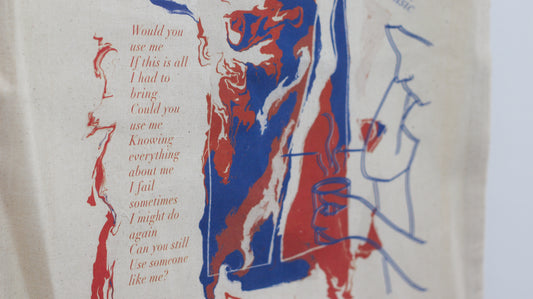 Would you
use me
If this is all
I had to
bring
Could you
use me
Knowing
everything
about me
I fail
sometimes
I might do
again
Can you still
Use someone
like me?